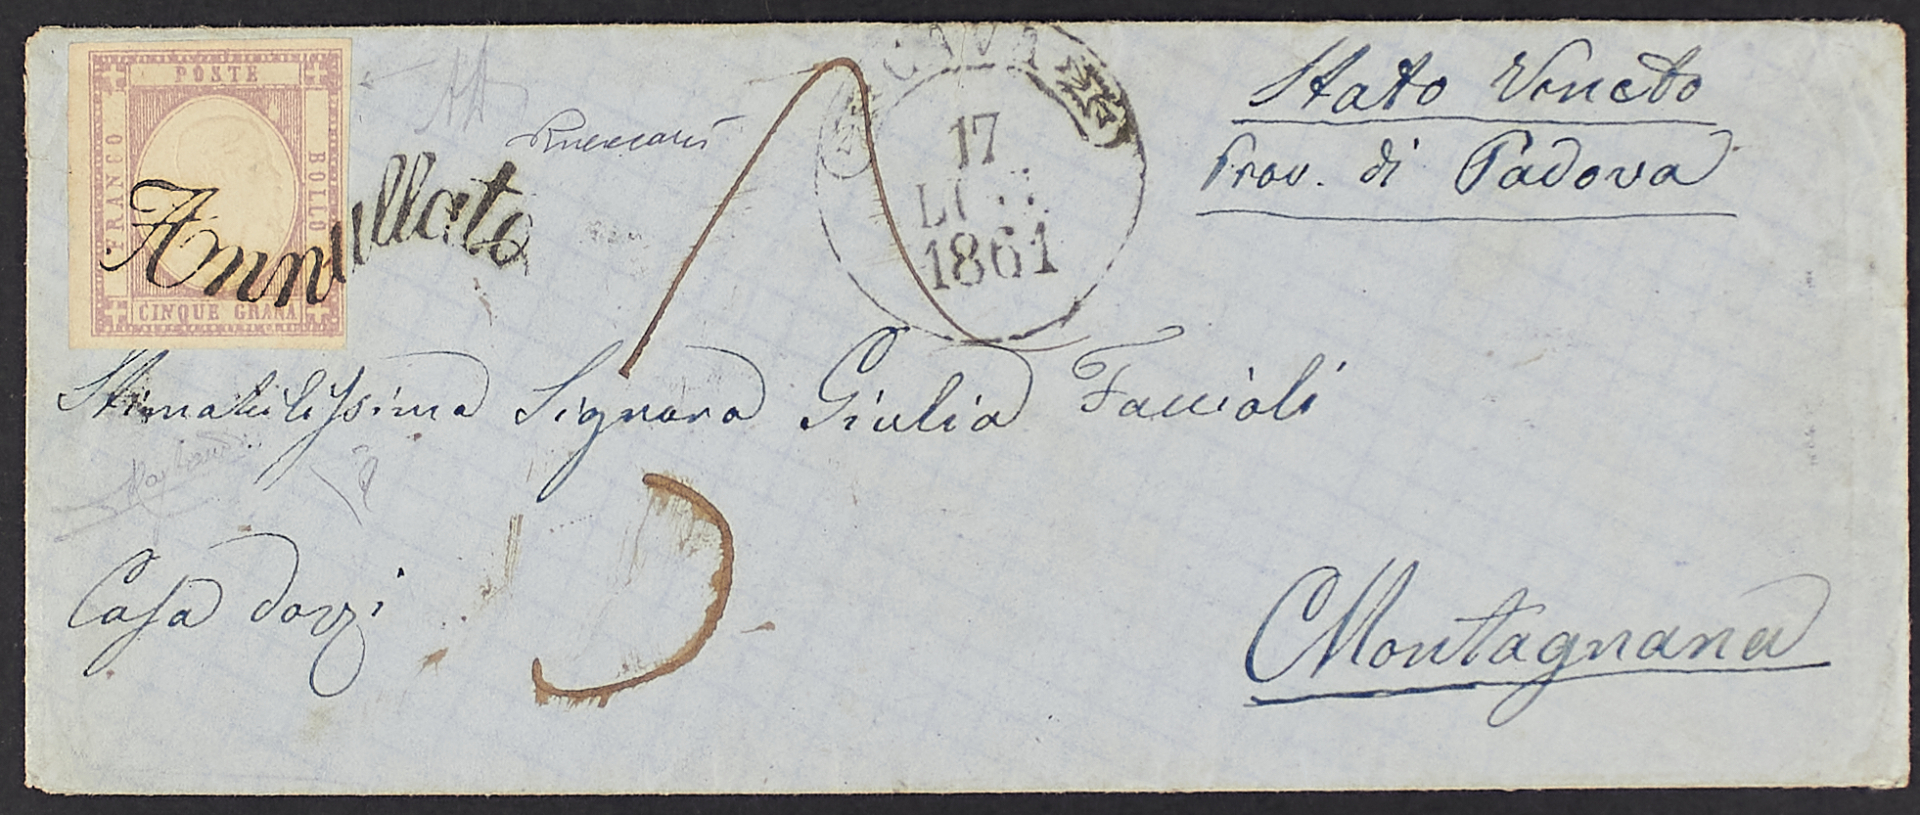 POSTE
FRANCO
BOLLO
CINQUE GRANA
Annullato
CAVA
17
1861
Stato Veneto
Prov. di Padova
Stimatilissima Signora Giulia Faccioli
Casa
Montagnana